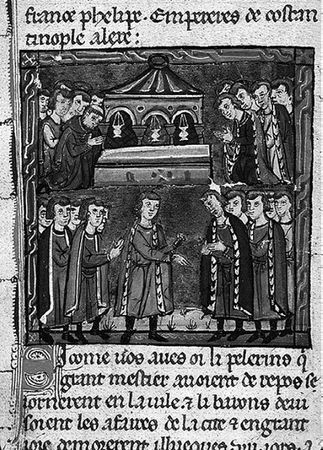 france phelipe. Empereres de costan
tinople alexe:
Si come vos aves oi li pelerins q
grant mestier avoient de repos se
iornerent en la vile & li barons devi
soient les afaires de la cite & en grant
ioie demorerent illueques